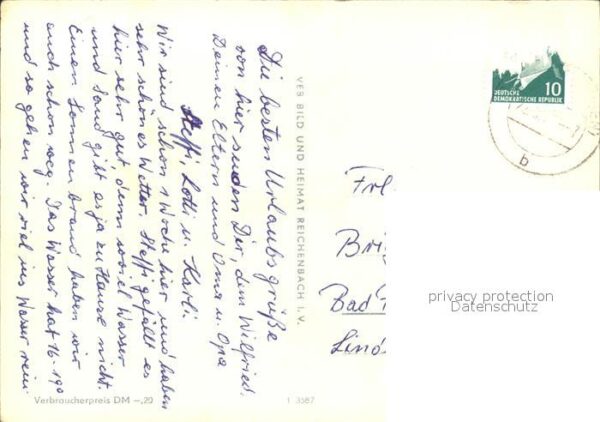 Die besten Urlaubsgrüße
von hier senden Dir, dem Wilfried.
Deinen Eltern und Oma u. Opa
Steffi, Lotti u. Karli.
Wir sind schon 1 Woche hier und haben
sehr schönes Wetter. Steffi gefällt es
hier sehr gut, denn soviel Wasser
und Sand gibt es ja zu Hause nicht.
Einen Sonnenbrand haben wir
auch schon weg. Das Wasser hat 16-19°
und so gehen wir viel ins Wasser rein
VEB BILD UND HEIMAT REICHENBACH I. V.
Verbraucherpreis DM -,20
I 3587
10
DEUTSCHE
DEMOKRATISCHE REPUBLIK
b
Frl
Bri
Bad
Lind
privacy protection
Datenschutz